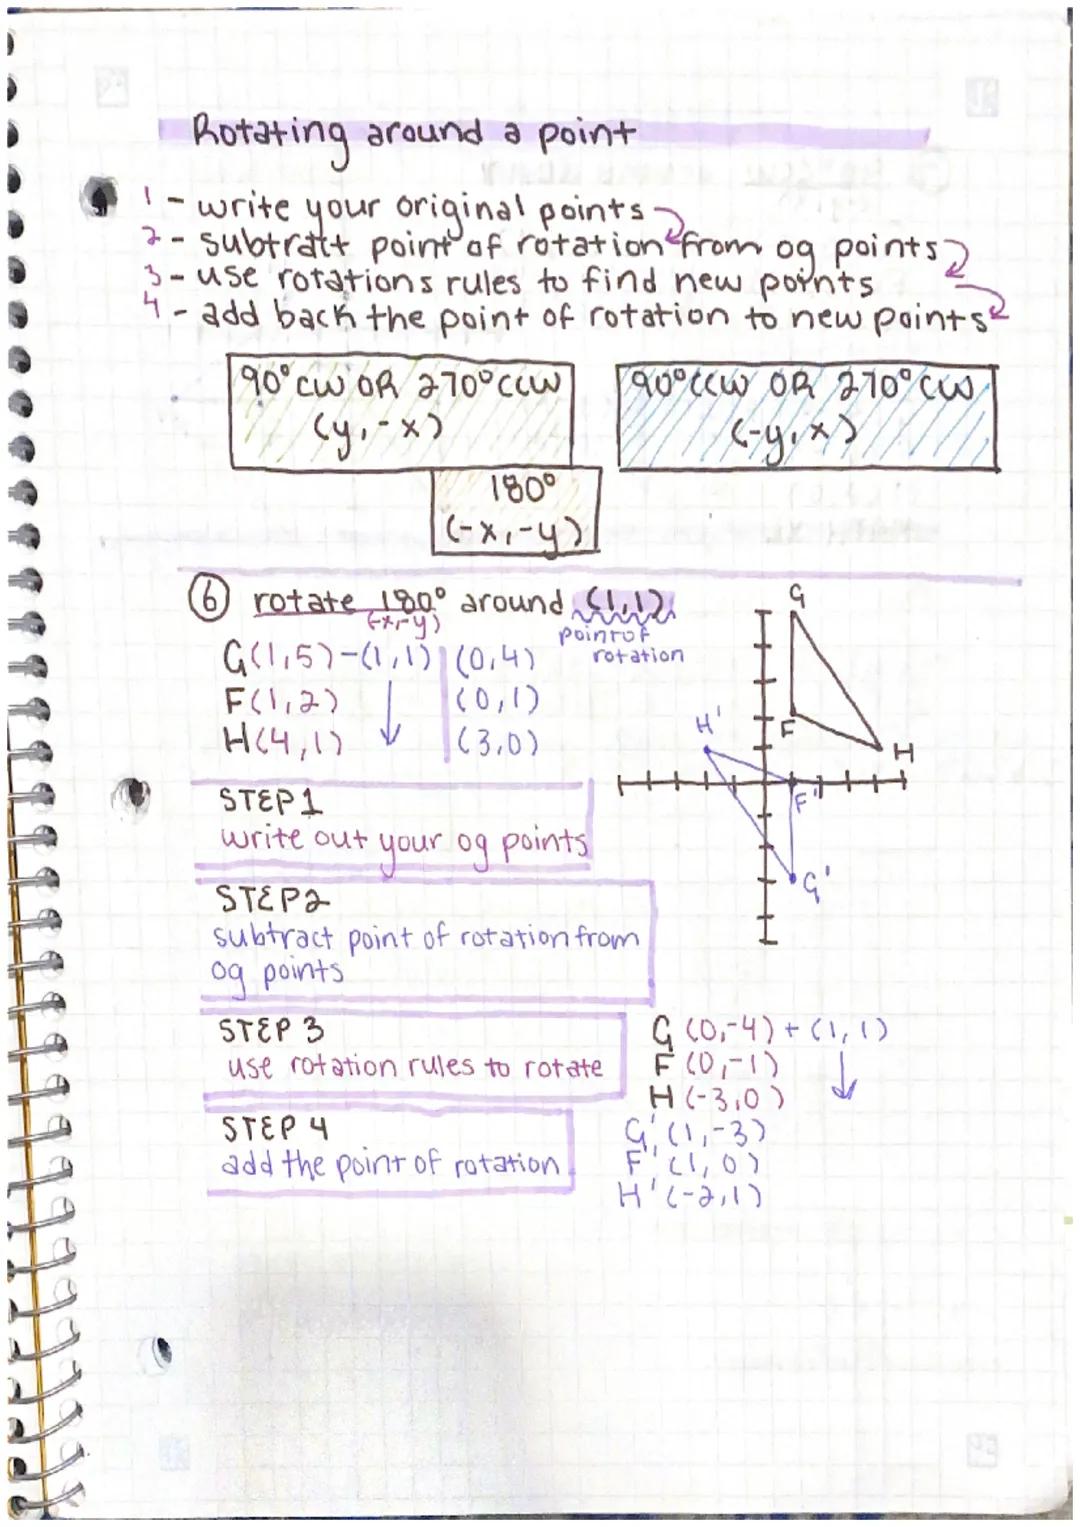 Rotating around a point
1 - write your original points
2 - subtratt point of rotation from og points
3 - use rotations rules to find new points
4 - add back the point of rotation to new points
90° CW OR 270° CCW
(y, -x)
90° CCW OR 270° CW
(-y, x)
180°
(-x, -y)
6 rotate 180° around (1,1)
(-x,-y)
point of
rotation
G(1,5) -(1,1) (0,4)
F(1,2) (0,1)
H(4,1) (3,0)
G
F
H
H'
F'
G'
STEP 1
write out your og points
STEP 2
subtract point of rotation from
og points
STEP 3
use rotation rules to rotate
STEP 4
add the point of rotation
G (0,-4) + (1,1)
F (0,-1)
H (-3,0)
G' (1,-3)
F' (1,0)
H' (-2,1)